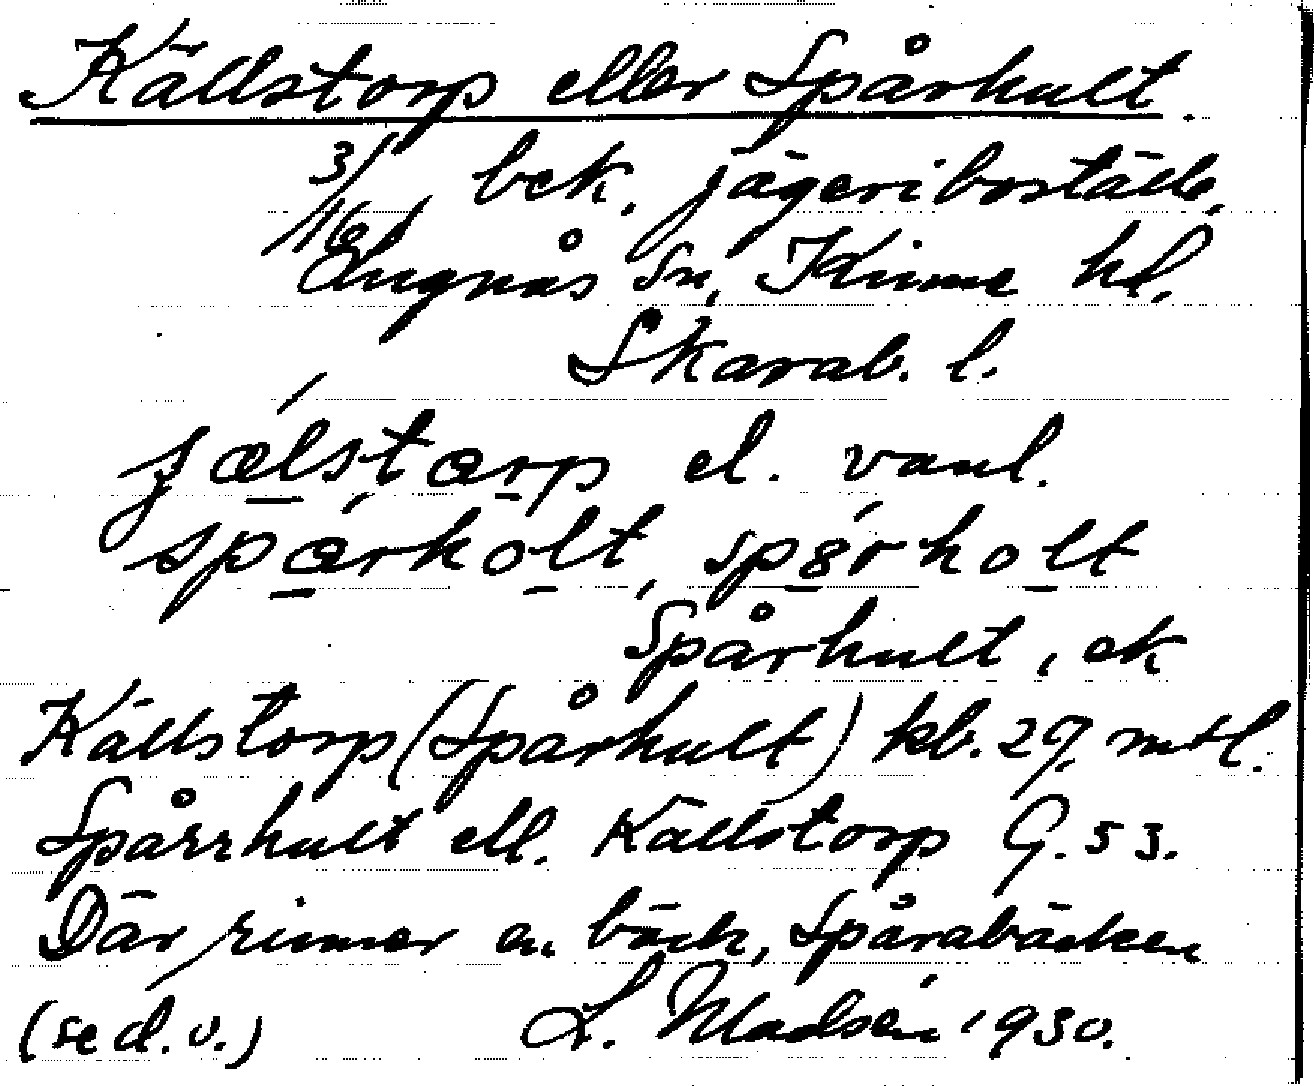 Källstorp eller Spårhult.
3/16 bek. jägeriboställe,
Lugnås sn, Kinne hd.
Skarab. l.
jælstærp el. vanl.
spærhòlt, spørholt
Spårhult, ek
Källstorp (Spårhult) kb. 29, mtl.
Spårrhult ell. Källstorp G. 53.
Där rinner en bäck, Spårabäcken
(se d. o.) L. Madsén 1930.